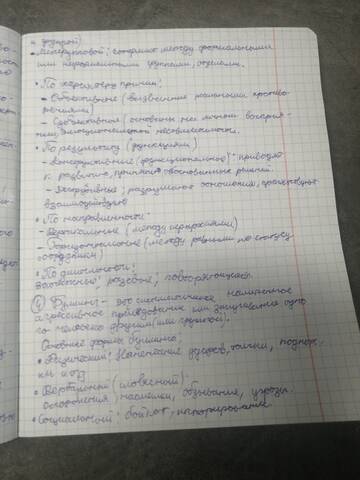 и задачей)
• Межгрупповой: конфликт между формальными
или неформальными группами, отделами.
• По характеру причин:
- Объективные (вызванные реальными противо-
речиями)
- Субъективные (основаны на личном восприя-
тии, эмоциональной несовместимости.
• По результату (функциям)
- Конструктивный (функциональной) - приводят
к развитию, принятию обоснованных решений.
- Деструктивные; разрушение отношения, препятствует
взаимодействию
• По направленности
- Вертикальные (между иерархиями)
- Горизонтальные (между равными по статусу
сотрудники)
• По длительности:
затяжные, разовые, повторяющиеся.
④ Буллинг - это систематическое намеренное
агрессивное преследование или запугивание одно
го человека другим (или группой).
Основные формы буллинга:
• Физический: Нанесение ударов, толчки, поднож
ки и др
• Вербальный (словесный)
оскорбления, насмешки, обзывания, угрозы
• Социальный: бойкот, игнорирование